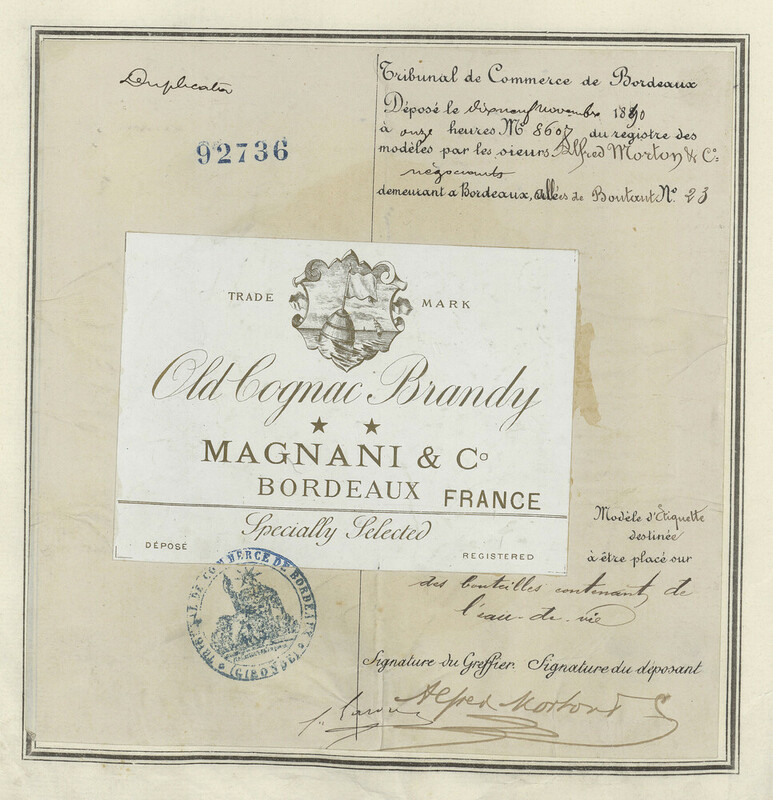 Duplicata
92736
Tribunal de Commerce de Bordeaux
Déposé le dixneuf Novembre 1890
à onze heures Nº 8607 du registre des
modèles par les sieurs Alfred Morton & Cº:
négociants
demeurant a Bordeaux, allées de Boutaut Nº. 23
TRADE MARK
Old Cognac Brandy
MAGNANI & Cº
BORDEAUX FRANCE
Specially Selected
DÉPOSÉ REGISTERED
Modèle d'Étiquette
destinée
à être placé sur
des bouteilles contenant de
l'eau-de-vie
TRIBUNAL DE COMMERCE DE BORDEAUX
(GIRONDE)
Signature du Greffier. Signature du déposant
Alfred Morton & C